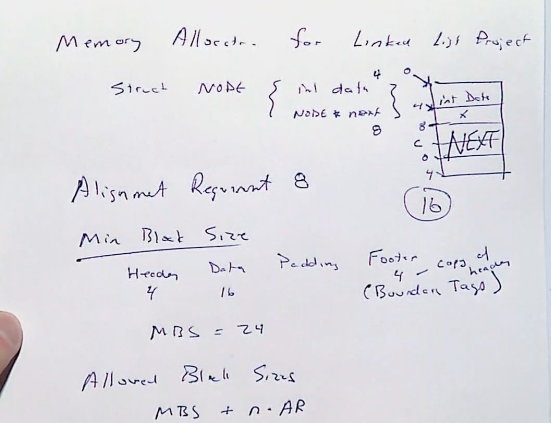 Memory Allocatr. for Linked List Project
Struct NODE { int data }
4
NODE * next
8
0
4 int Data
8 x
C NEXT
0
4
16
Alignmet Requirmt 8
Min Block Size
Header Data Padding Footer
4 16 4 - copy of header
(Boundary Tags)
MBS = 24
Allowed Block Sizes
MBS + n · AR